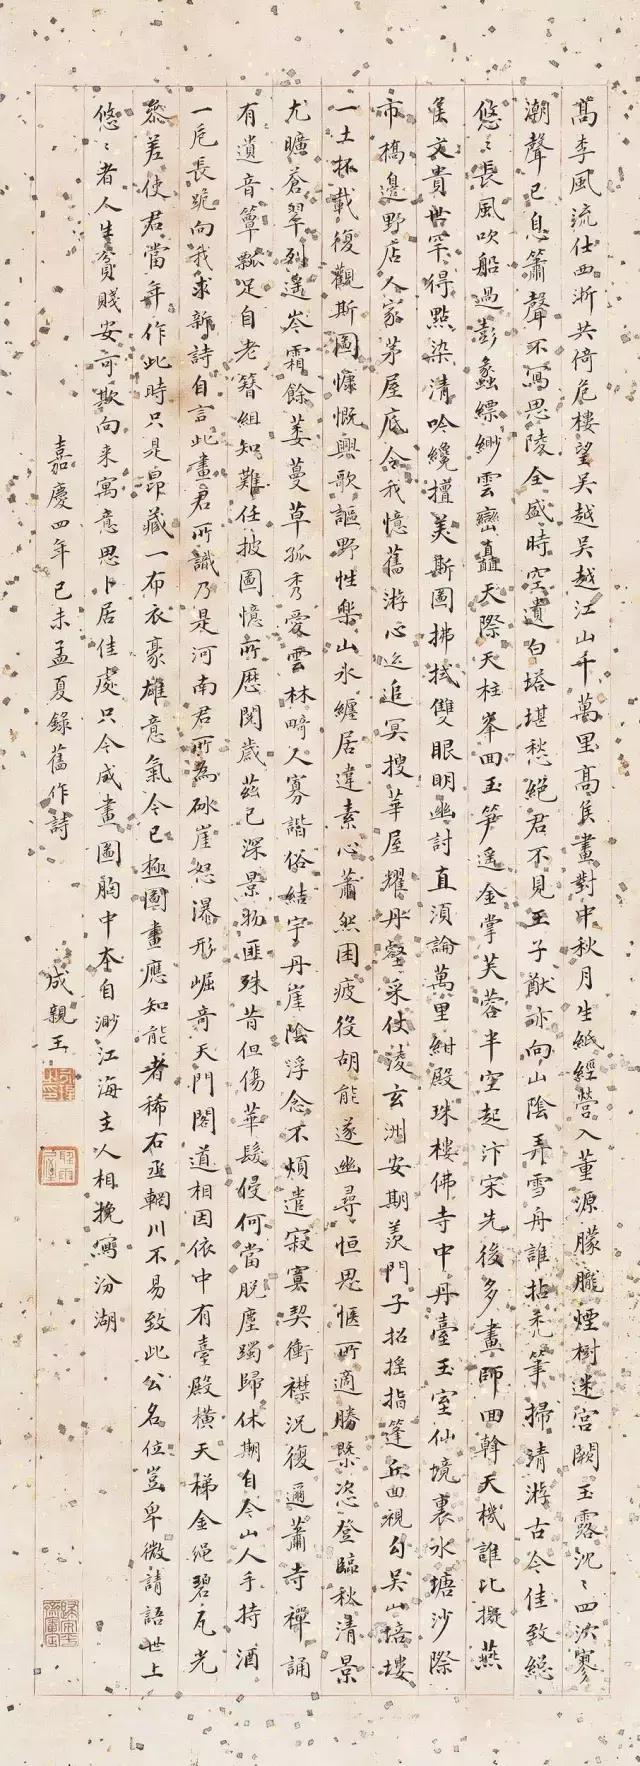 高李風流仕西浙共倚危樓望吳越吳越江山千萬里高侯畫對中秋月生紙經營入董源朦朧煙樹迷宮闕玉露沈〻四泬寥
潮聲已息簫聲不寫思陵全盛時空遺白塔堪愁絕君不見王子猷亦向山陰弄雪舟誰拈禿筆掃清游古今佳致総
悠〻長風吹船過彭蠡縹緲雲巒矗天際天柱峯回玉笋遙金掌芙蓉半空起汴宋先後多畫師回斡天機誰比擬燕
侯文貴世罕得點染清吟纔擅美斯圖拂拭雙眼明幽討直須論萬里紺殿珠樓佛寺中丹臺玉室仙境裏水塘沙際
市橋邊野店人家茅屋底令我憶舊游心迄追冥搜華屋耀丹壑采仗淩玄洲安期羨門子招搖指篷丘回視勾吳山培塿
一土抔載復觀斯圖慷慨興歌謳野性樂山水纏居違素心蕭然困疲役胡能遂幽尋恒思愜所適勝槩恣登臨秋清景
尤曠蒼翠列遙岑霜餘萎蔓草孤秀愛雲林畸人寡諧俗結宇丹崖陰浮念不煩遣寂寞契衝襟況復邇蕭寺禪誦
有遺音簞瓢足自老簪組知難任披圖憶所歷閱歲茲已深景物匪殊昔但傷華髮侵何當脫塵躅歸休期自今山人手持酒
一卮長跪向我求新詩自言此畫君所識乃是河南君所為砯崖怒瀑形崛奇天門閣道相因依中有臺殿橫天梯金繩碧瓦光
參差使君當年作此時只是昂藏一布衣豪雄意氣今已極圖畫應知能者稀右丞輞川不易致此公名位豈卑微請語世上
悠〻者人生貧賤安可欺向来寓意思卜居佳處只今成畫圖胸中本自渺江海主人相挽寫汾湖
嘉慶四年己未孟夏錄舊作詩 成親王